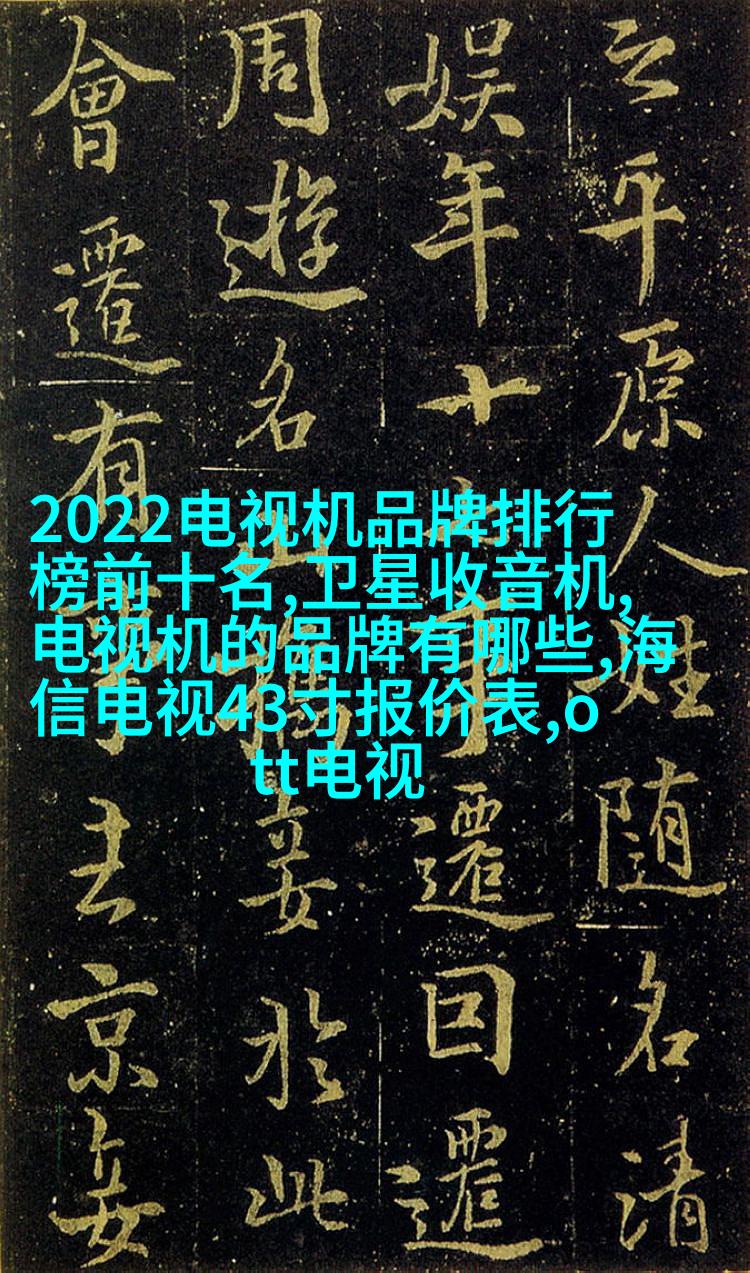 之平原人姓随名清
娱年十七事遷因遷
周遊名山携妾於此
會遷有事去京妾
2022电视机品牌排行
榜前十名,卫星收音机,
电视机的品牌有哪些,海
信电视43寸报价表,o
tt电视